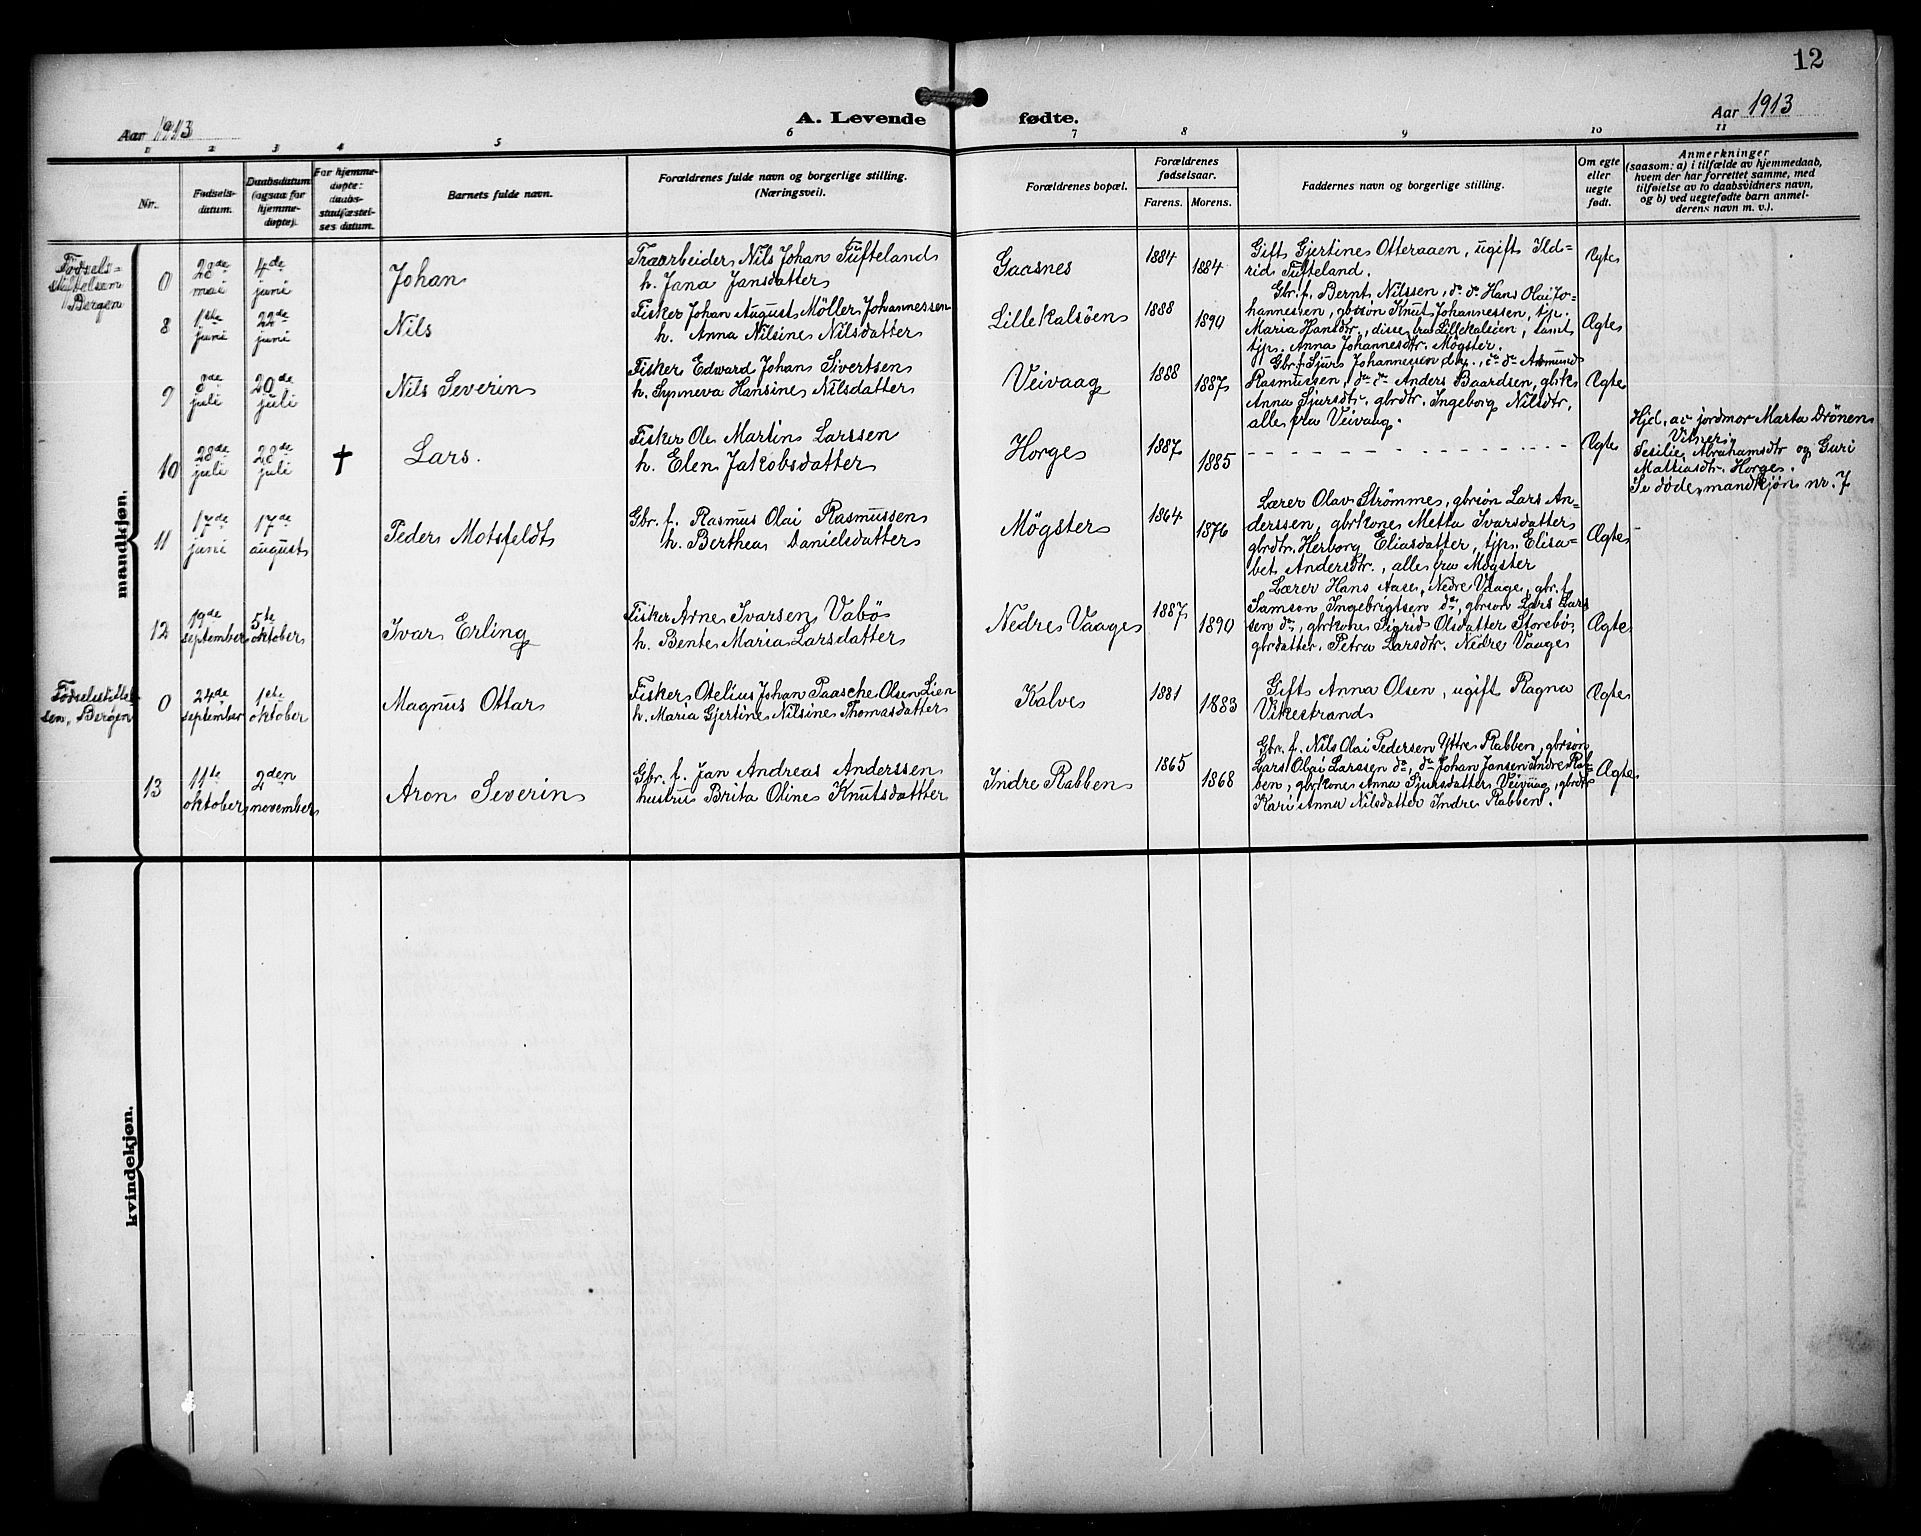 12
Aar 1913
A. Levende fødte.
Aar 1913
1 2 3 4 5 6 7 8 9 10 11
Nr.
Fødsels-
datum.
Daabsdatum
(ogsaa for
hjemme-
døpte).
For hjemme-
døpte:
daabs-
stadfæstel-
ses datum.
Barnets fulde navn.
Forældrenes fulde navn og borgerlige stilling.
(Næringsvei).
Forældrenes bopæl.
Forældrenes
fødselsaar.
Farens. Morens.
Faddernes navn og borgerlige stilling.
Om egte
eller
uegte
født.
Anmerkninger
(saasom: a) i tilfælde av hjemmedaab,
hvem der har forrettet samme, med
tilføielse av to daabsvidners navn,
og b) ved uegtefødte barn anmel-
derens navn m. v.).
mandkjøn.
Fødsels-
stiftelsen
Bergen
0
28de
mai
4de
juni
Johan
Træarbeider Nils Johan Tufteland
h. Jana Jansdatter
Gaasnes
1884
1884
Gift Gjertine Otteraaen, ugift Ild-
rid Tufteland.
Ægte
8
1ste
juni
22de
juni
Nils
Fisker Johan August Möller Johannessen
h. Anna Nilsine Nilsdatter
Lillekalsöen
1888
1890
Gbr. f. Bernt Nilssen, do do Hans Olai Jo-
hannessen, gbrsön Knut Johannessen, tjp.
Maria Hansdtr., disse fra Lillekalsöen, samt
tjp. Anna Johannesdtr. Møgster.
Ægte
9
juli
20de
juli
Nils Severin
Fisker Edward Johan Sivertsen
h. Synneva Hansine Nilsdatter
Veivaag
1888
1887
Gbr. f. Sjur Johannessen do Asmund
Rasmussen, do do Anders Baardsen, gbrk.
Anna Sjursdtr. gbrdtr. Ingeborg Nilsdtr.
alle fra Veivaag.
Ægte
10
28de
juli
28de
juli
†
Lars.
Fisker Ole Martin Larssen
h. Elen Jakobsdatter
Horge
1887
1885
- - - - - - - - - - - - - - -
Ægte
Hjd. av jordmor Marta Drönen
Vitner:
Sesilie Abrahamsdtr og Guri
Mattiasdtr. Horge.
Se døde, mandkjøn nr. 7
11
17de
juni
17de
august
Peder Motsfeldt
Gbr. f. Rasmus Olai Rasmussen
h. Berthea Danielsdatter
Møgster
1864
1876
Lærer Olav Strömme, gbrsön Lars An-
derssen, gbrkone Metta Ivarsdatter
gbrdtr. Herborg Eliasdatter, tjp. Elisa-
bet Andersdtr., alle fra Møgster
Ægte
12
19de
september
5te
oktober
Ivar Erling
Fisker Arne Ivarsen Vabö
h. Bente Maria Larsdatter
Nedre Vaage
1887
1890
Lærer Hans Aase, Nedre Vaage, gbr. f.
Samson Ingebrigtsen do, gbrsön Lars Lars
sen do, gbrkone Sigrid Olsdatter Storebö,
gbrdatter. Petra Larsdtr. Nedre Vaage
Ægte
Fødselsstiftel-
sen, Bergen
0
24de
september
1ste
oktober
Magnus Ottar
Fisker Otelius Johan Paasche Olsen Lien
h. Maria Gjertine Nilsine Thomasdatter
Kalve
1881
1883
Gift Anna Olsen, ugift Ragna
Vikestrand
Ægte
13
11te
oktober
2den
november
Aron Severin
Gbr. f. Jan Andreas Anderssen
hustru Brita Oline Knutsdatter
Indre Rabben
1865
1868
Gbr. f. Nils Olai Pedersen Yttre Rabben, gbrsön
Lars Olai Larssen do, do Johan Jansen Indre Rab-
ben, gbrkone Anna Sjursdatter Veivaag, gbrdtr
Kari Anna Nilsdatter Indre Rabben.
Ægte
kvindekjøn.